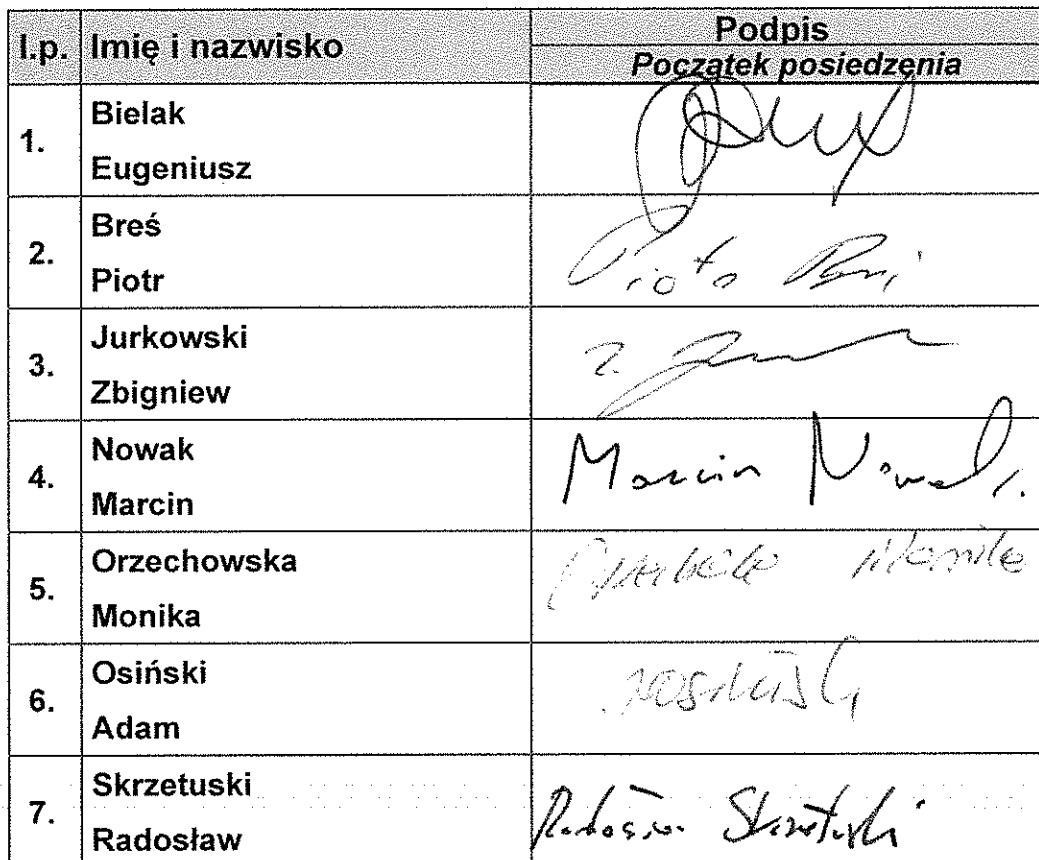 l.p. Imię i nazwisko Podpis
Początek posiedzenia
1. Bielak
Eugeniusz
2. Breś
Piotr
Piotr
3. Jurkowski
Zbigniew
Z.
4. Nowak
Marcin
Marcin Nowak
5. Orzechowska
Monika
Monika
6. Osiński
Adam
7. Skrzetuski
Radosław
Skrzetuski